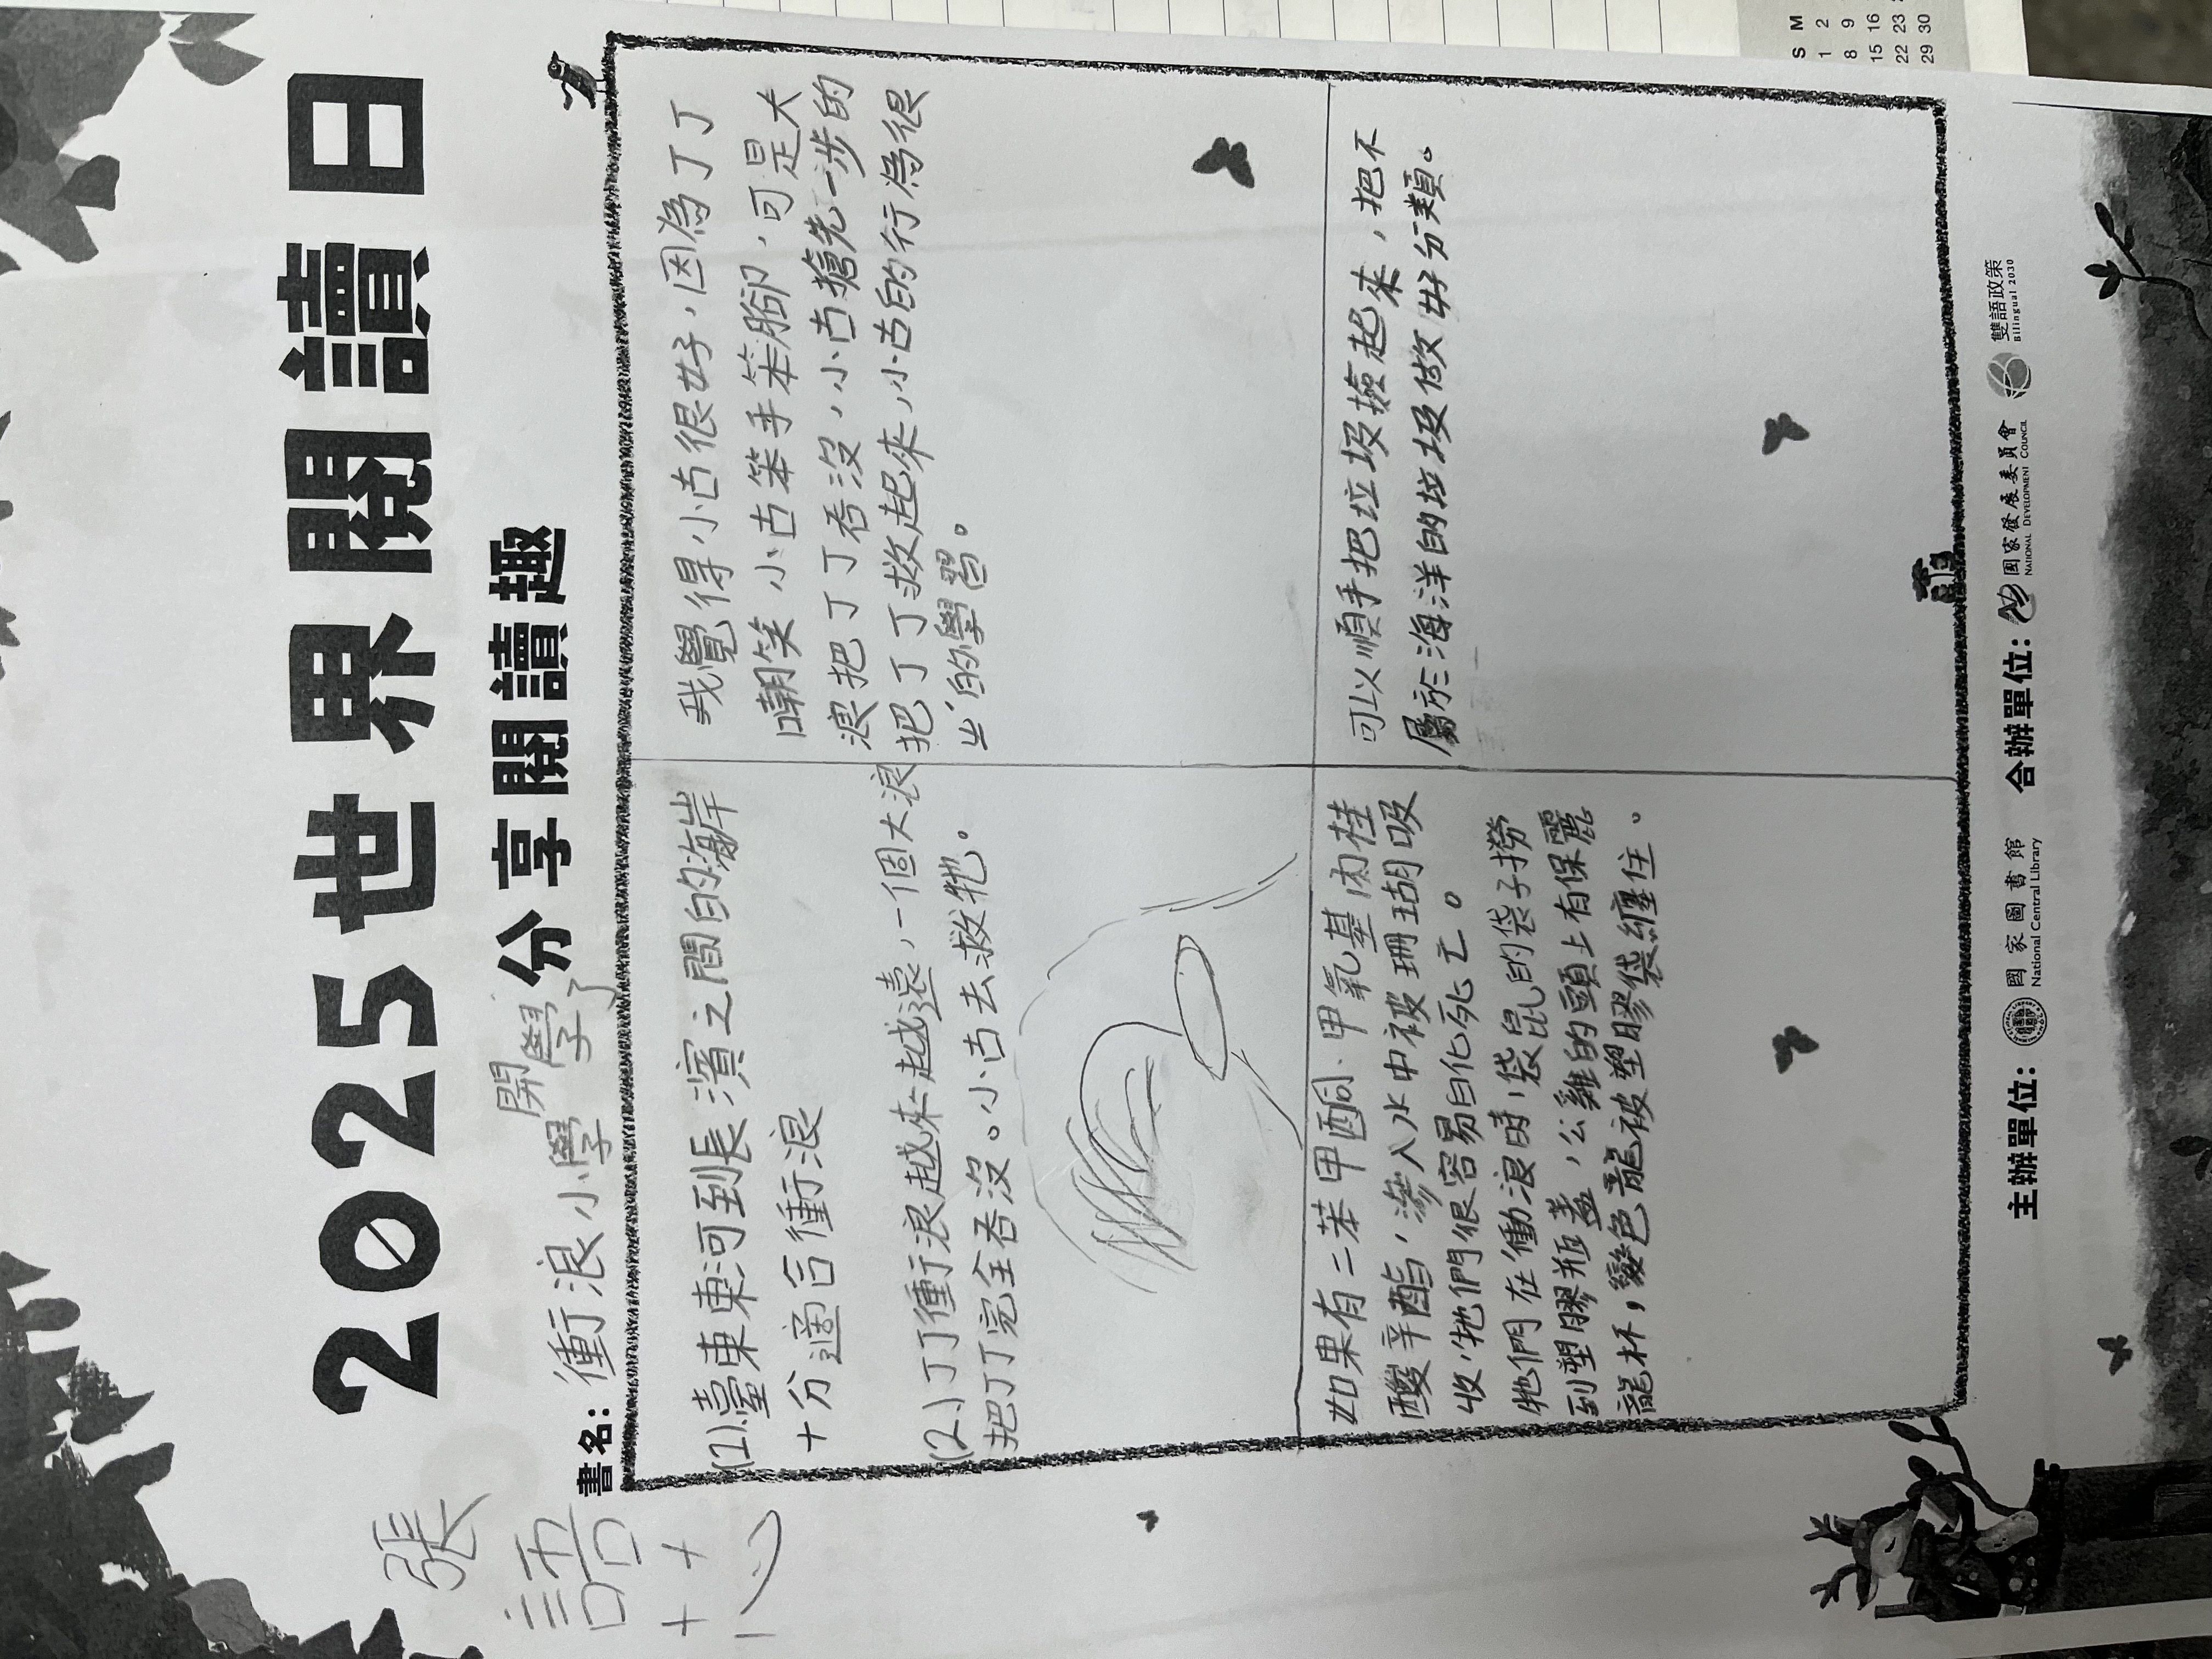 2025世界閱讀日
分享閱讀趣
張
語
書名：衝浪小學開學了
(1)臺東東河到長濱之間的海岸
十分適合衝浪
(2)丁丁衝浪越來越遠，一個大浪
把丁丁完全吞沒。小古去救牠。
我覺得小古很好，因為丁丁
嘲笑小古笨手笨腳，可是大
浪把丁丁吞沒，小古搶先一步的
把丁丁救起來，小古的行為很
的學習。
如果有二苯甲酮、甲氧基肉桂
酸辛酯，滲入水中被珊瑚吸
收，牠們很容易白化死亡。
牠們在衝浪時，袋鼠的袋子撈
到塑膠瓶蓋，公雞的頭上有保麗
龍杯，變色龍被塑膠袋纏住。
可以順手把垃圾撿起來，把不
屬於海洋的垃圾做好分類。
主辦單位：
國家圖書館
National Central Library
合辦單位：
國家發展委員會
NATIONAL DEVELOPMENT COUNCIL
雙語政策
Bilingual 2030
S M
1 2
8 9
15 16
22 23
29 30